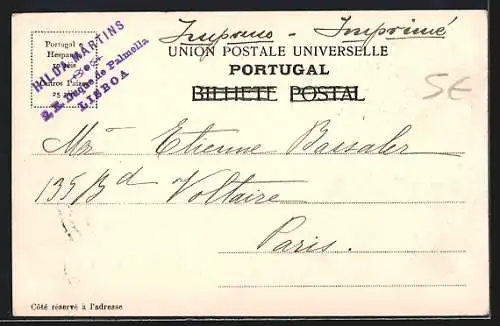 Impresso - Imprimé
UNION POSTALE UNIVERSELLE
PORTUGAL
BILHETE POSTAL
Portugal e
Hespanha
10 reis
Outros Paizes
25
HILDA MARTINS
2, R. Duque de Palmella
LISBOA
5€
Mer Etienne Baissaler
135 Bd Voltaire
Paris.
Côté réservé à l'adresse